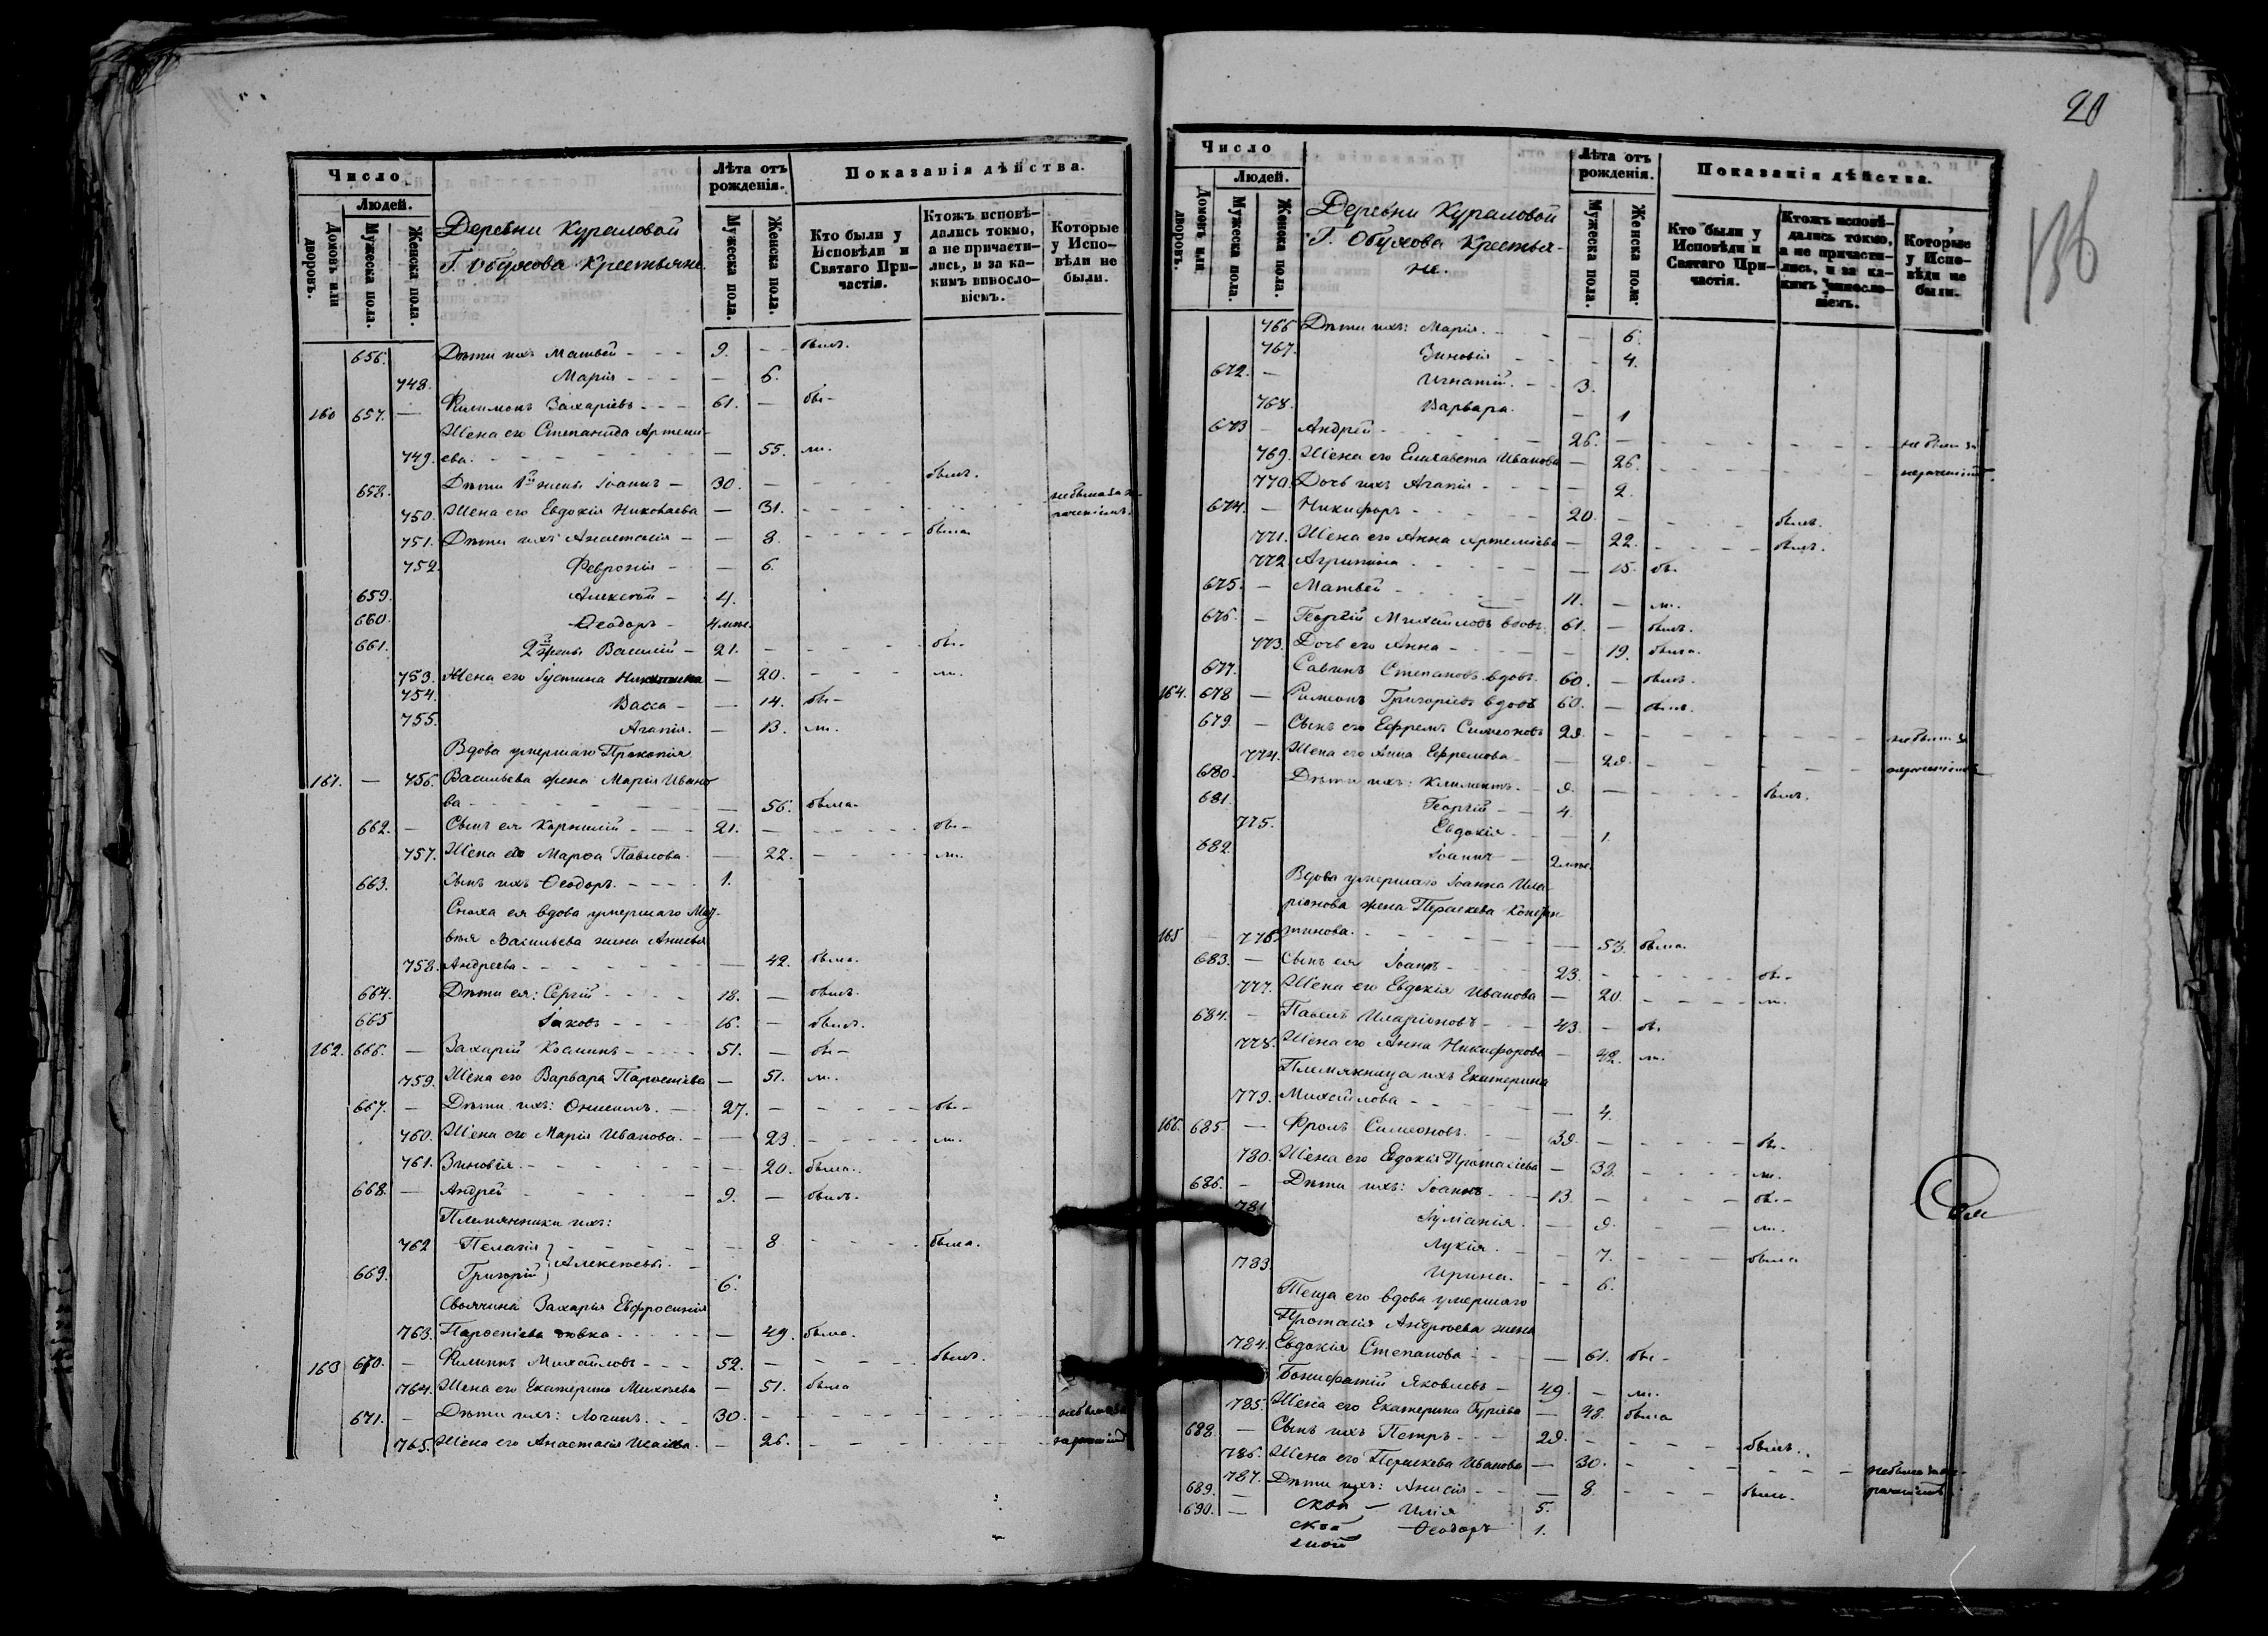 20
136
Число
Людей.
Домовъ или дворовъ.
Мужеска пола.
Женска пола.
Деревни Кураловой
Г. Обухова Крестьяне.
Лѣта отъ рожденія.
Мужеска пола.
Женска пола.
Показанія дѣйства.
Кто были у Исповѣди и Святаго Причастія.
Ктожъ исповѣдались токмо, а не причастились, и за какимъ винословіемъ.
Которые у Исповѣди не были.
656. Дѣти ихъ Матвей - - - 9. - - былъ.
748. Марія - - - — 6.
160 657. — Филимонъ Захаріевъ - - - 61. — бы-
Жена его Степанида Артемі-
749. ева. - - - — 55. ла.
658. Дѣти 1й жены Іоаннъ — 30. — - - - былъ.
750. Жена его Евдокія Николаева — 31. - - - не была за не-
рачен
751. Дѣти ихъ Анастасія — — 8. - - - была
752. Феврония — — 6.
659. Алексѣй — 4.
660. Ѳеодоръ — 4 мѣс.
661. 2й жены Василій — 21. — - - - бы-
753. Жена его Іустина — 20. - - - ла.
754. Васса — — 14. бы-
755. Агапія. — 13. ла.
Вдова умершаго Прокопія
161. — 756. Васильева жена Марія Ивано
ва - - - — 56. была.
662. — Сынъ ея Корнилій - - - 21. — - - - бы-
757. Жена его Марѳа Павлова. — 22. - - - ла.
663. Сынъ ихъ Ѳеодоръ. - - - 1.
Сноха ея вдова умершаго Мат-
вѣя Васильева жена
758. Андреева - - - — 42. была.
664. Дѣти ея: Сергій - - - 18. — былъ.
665 Іаковъ - - - 16. — былъ.
162. 666. — Захарій Косминъ - - - 51. — бы-
759. Жена его Варвара — 51. ла.
667. — Дѣти ихъ: Онисимъ. — 27. — - - - бы-
760. Жена его Марія Иванова. — 23. - - - ла.
761. Зиновія. - - - — 20. была.
668. — Андрей - - - 9. — былъ.
Племянники ихъ:
762 Пелагія } - - - 8. - - - была.
669. Григорій } Алексѣевы. — 6.
Своячина Захарія Евфросинія
763. дѣвка - - - — 49. была.
163 670. — Филиппъ Михайловъ - - - 52. — - - - былъ.
764. Жена его Екатерина — 51. была
671. — Дѣти ихъ: Логинъ. - - - 30. - - - не были за
765. Жена его Анастасія — 26. - - -
Число
Людей.
Домовъ или дворовъ.
Мужеска пола.
Женска пола.
Деревни Кураловой
Г. Обухова Крестья-
не.
Лѣта отъ рожденія.
Мужеска пола.
Женска пола.
Показанія дѣйства.
Кто были у Исповѣди и Святаго Причастія.
Ктожъ исповѣдались токмо, а не причастились, и за какимъ винословіемъ.
Которые у Исповѣди не были.
766 Дѣти ихъ: Марія. - - — 6.
767. Зиновія - - — 4.
672. — Игнатій. - - 3.
768. Варвара. — 1
673 — Андрей - - - 26. — - - - не были за
769. Жена его Елизавета Иванова — 26. - - -
770. Дочь ихъ Агапія - - - — 2.
674. — Никифоръ - - - 20. — - - - былъ.
771. Жена его Анна Артеміева — 22. - - - была.
772. Агрипина - - - — 15. бы.
675. — Матвей - - - 11. — ли.
676. — Георгій Михайловъ вдовъ. 61. — былъ.
773. Дочь его Анна - - - — 19. была.
677. Савинъ Степановъ вдовъ. 60. — былъ.
164. 678 — Симеонъ Григоріевъ вдовъ 60. — былъ.
679. — Сынъ его Ефремъ Симеоновъ 29. — - - - не были за
774. Жена его Анна Ефремова - — 29. - - -
680. Дѣти ихъ: Климентъ. - 9. — - - - былъ.
681. Георгій — - 4.
775. Евдокія - - — 1.
682. Іоаннъ — 2 мѣс.
Вдова умершаго Іоанна Ила-
ріонова жена Параскева Констан
165 — 776. тинова. - - - — 53. была.
683. — Сынъ ея Іоаннъ - - - 23. - - - бы-
777. Жена его Евдокія Иванова — 20. - - - ли.
684. — Павелъ Иларіоновъ - - - 43. — бы.
778. Жена его Анна Никифорова — 42. ли.
Племянница ихъ Екатерина
779. Михайлова - - - — 4.
166. 685. — Фролъ Симеоновъ. - - 39. — - - - бы-
780. Жена его Евдокія Протасіева — 38. - - - ли.
686. — Дѣти ихъ: Іоаннъ. - - 13. — - - - бы-
781. Іуліанія. — 9. - - ли.
Лукія. - - 7. - - - была
783. Ирина. - - 6.
Теща его вдова умершаго
Протасія Андреева жена
784. Евдокія Степанова - - - — 61. бы-
Бонифатій Яковлевъ — 49. — ли.
785. Жена его Екатерина Гуріева — 48. была
688. — Сынъ ихъ Петръ - - - 29. — - - - былъ.
786. Жена его Параскева Иванова — 30. - - - не была за не-
787. Дѣти ихъ: Анисія - - — 8. - - - была.
689. — Илія 5.
690. — Ѳеодоръ 1.